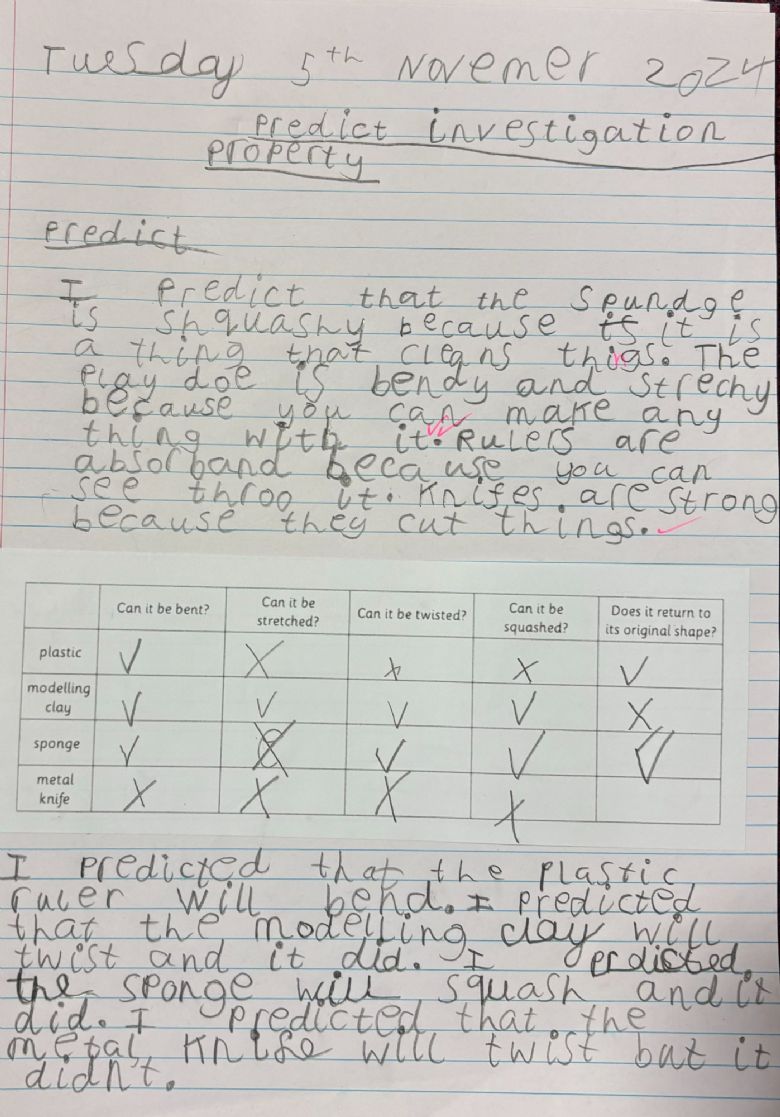 Tuesday 5th Novemer 2024
Predict investigation
property
Predict
I Predict that the Spundge
is shquashy because it is
a thing that cleans things. The
Play doe is bendy and strechy
because you can make any
thing with it. Rulers are
absorband because you can
see throo it. Knifes are strong
because they cut things.
Can it be bent? Can it be stretched? Can it be twisted? Can it be squashed? Does it return to its original shape?
plastic ✓ ✗ ✗ ✗ ✓
modelling clay ✓ ✓ ✓ ✓ ✗
sponge ✓ ✓ ✓ ✓
metal knife ✗ ✗ ✗ ✗
I Predicted that the Plastic
ruler will bend. I Predicted
that the modelling clay will
twist and it did. I predicted
the sponge will squash and it
did. I predicted that the
metal knife will twist but it
didn't.